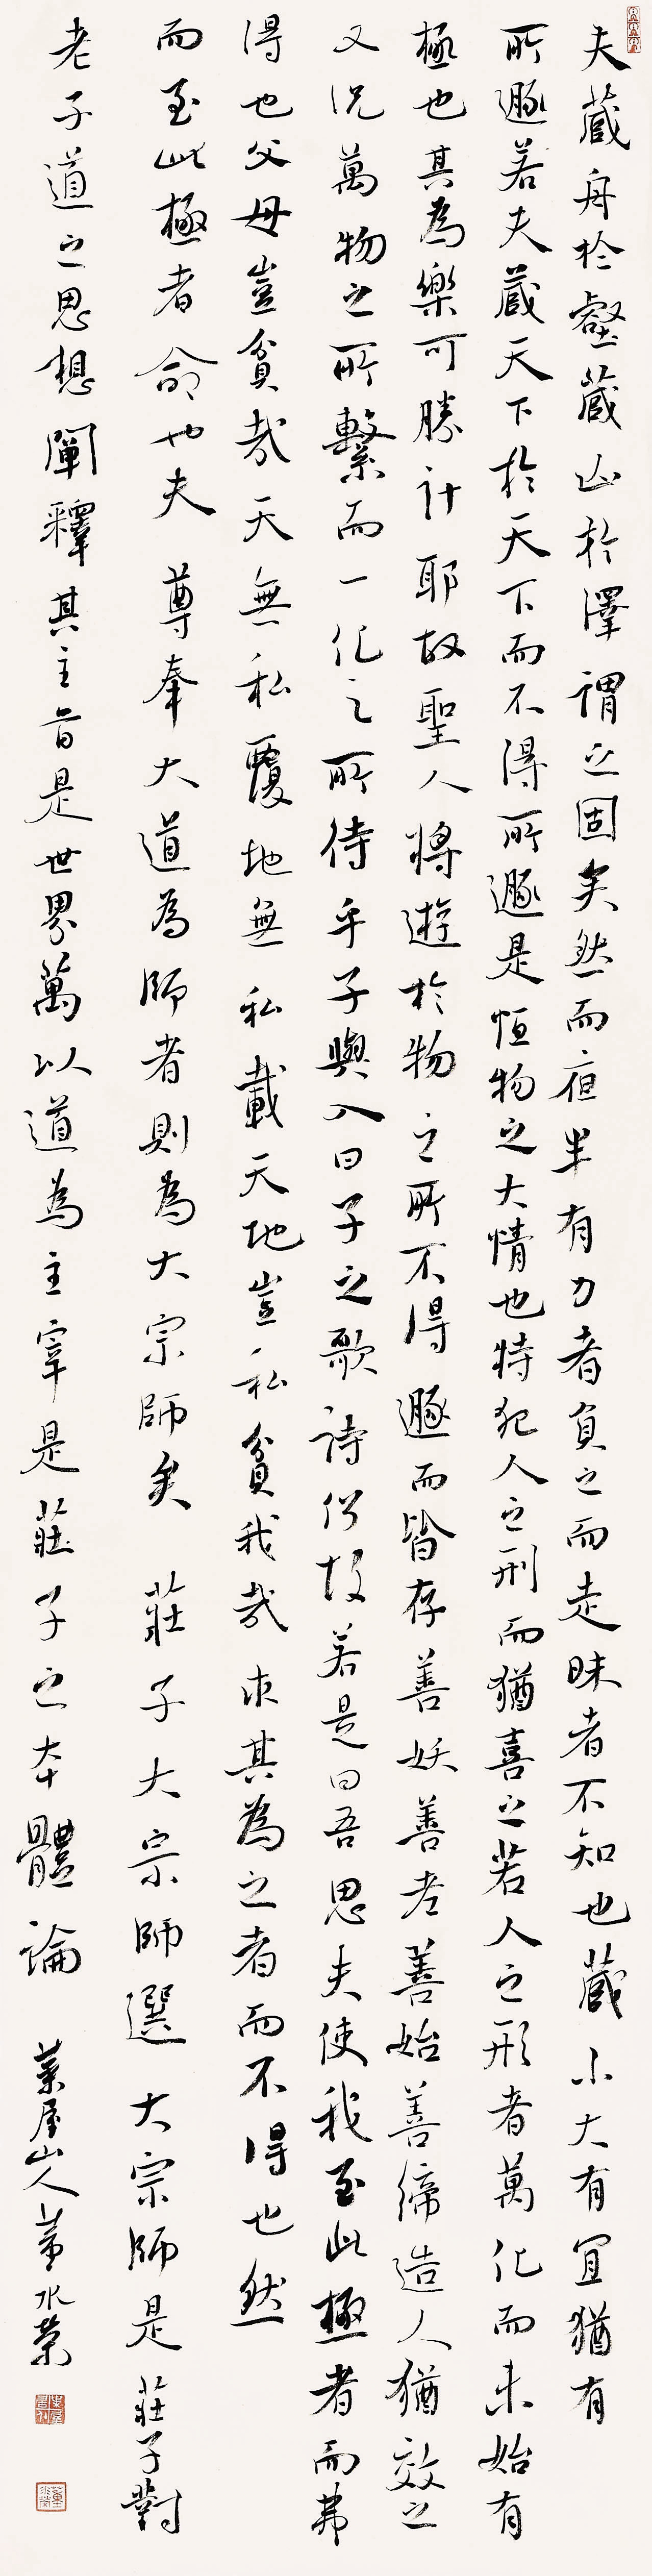 夫藏舟於壑藏山於澤謂之固矣然而夜半有力者負之而走昧者不知也藏小大有宜猶有
所遯若夫藏天下於天下而不得所遯是恆物之大情也特犯人之刑而猶喜之若人之形者萬化而未始有
極也其為樂可勝計耶故聖人將遊於物之所不得遯而皆存善妖善老善始善締造人猶效之
又況萬物之所繫而一化之所待乎子輿入曰子之歌詩何故若是曰吾思夫使我至此極者而弗
得也父母豈貧哉天無私覆地無私載天地豈私貧我哉求其為之者而不得也然
而至此極者命也夫 尊奉大道為師者則為大宗師矣 莊子大宗師選 大宗師是莊子對
老子道之思想闡釋其主旨是世界萬以道為主宰是莊子之本體論 葉屋山人董水榮